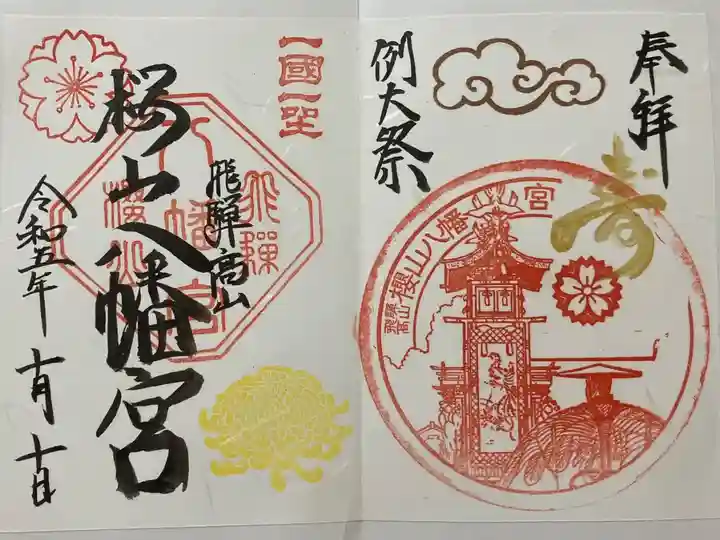 奉拝
寿
例大祭
飛騨高山 櫻山八幡宮
一國一社
飛騨高山
桜山八幡宮
飛騨
八幡宮
櫻山
令和五年
十月十日